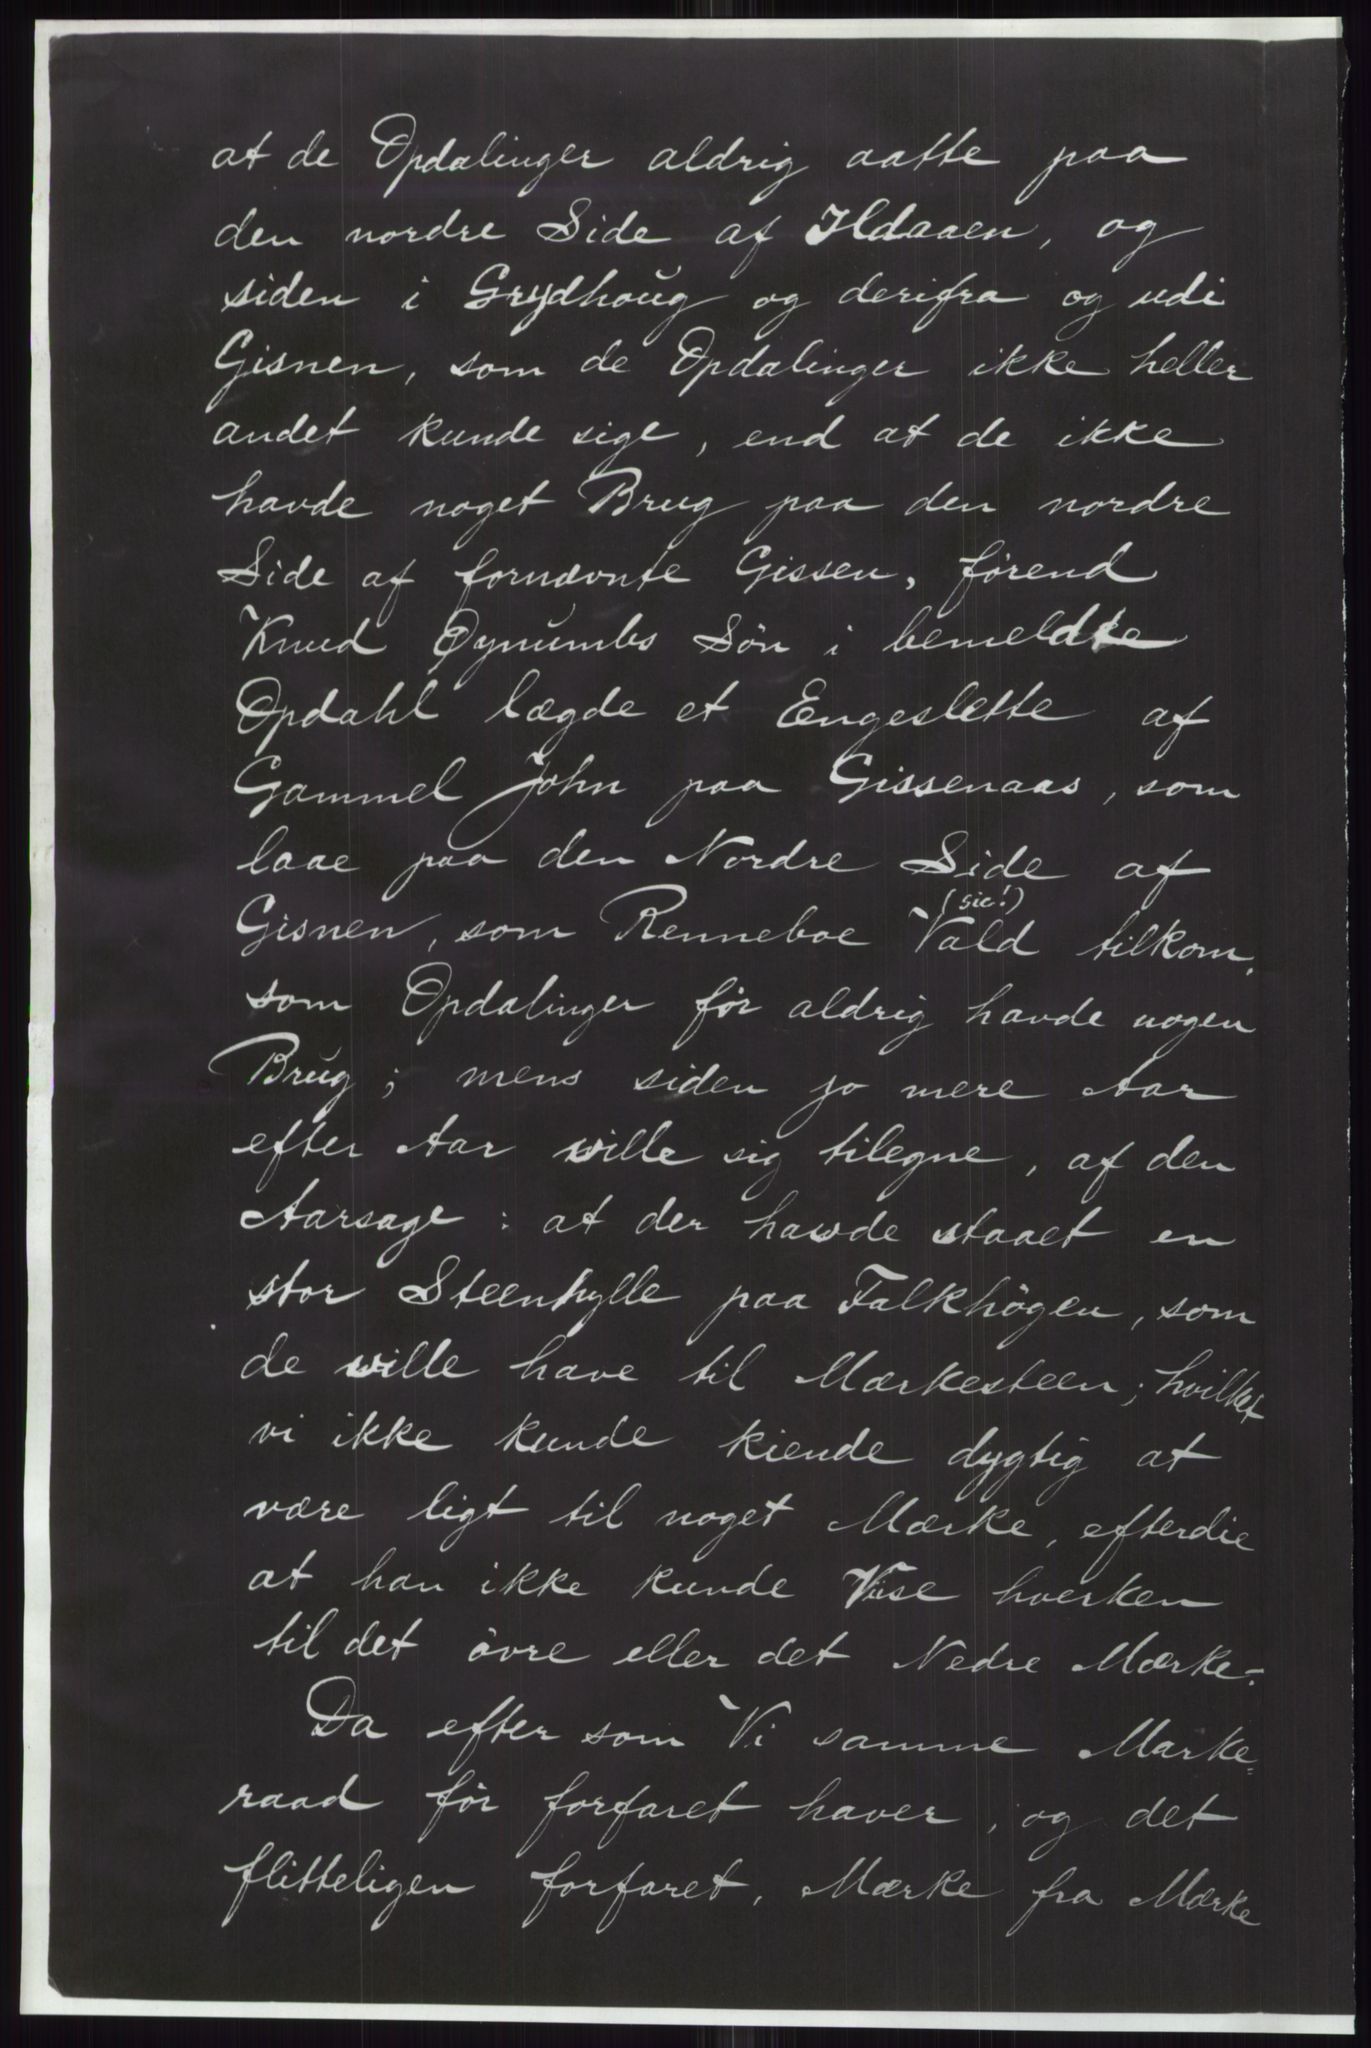 at de Opdalinger aldrig aatte paa
den nordre Side af Ildaaen, og
siden i Grydhoŭg og derifra og udi
Gisnen, som de Opdalinger ikke heller
andet kunde sige, end at de ikke
havde noget Brug paa den nordre
Side af fornævnte Gissen, førend
Knud Øynŭmbs Søn i bemeldte
Opdahl lægde et Engeslette af
Gammel John paa Gissenaas, som
laae paa den Nordre Side af
(sic!)
Gisnen, som Renneboe Vald tilkom,
som Opdalinger før aldrig havde nogen
Brŭg; mens siden jo mere Aar
efter Aar wille sig tilegne, af den
Aarsage: at der hawde staaet en
stor Steenhylle paa Falkhögen, som
de wille have til Mærkesteen; hvilket
vi ikke kunde kiende dygtig at
være ligt til noget Mærke, efterdie
at han ikke kunde Viise hverken
til det övre eller det Nedre Mærke.-
Da efter som Vi samme Marke=
raad før forfaret haver; og det
flitteligen forfaret, Mærke fra Mærke